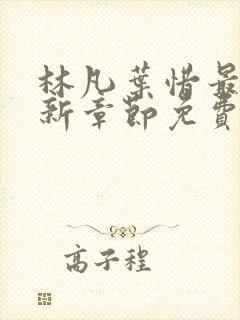 林凡葉惜最
新章節免費
高子程